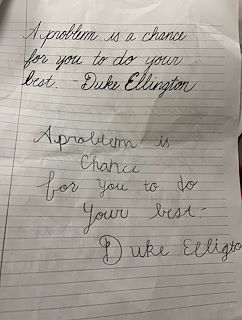 A problem is a chance
for you to do your
best. - Duke Ellington
A problem is
Chance
for you to do
your best -
Duke Elligto